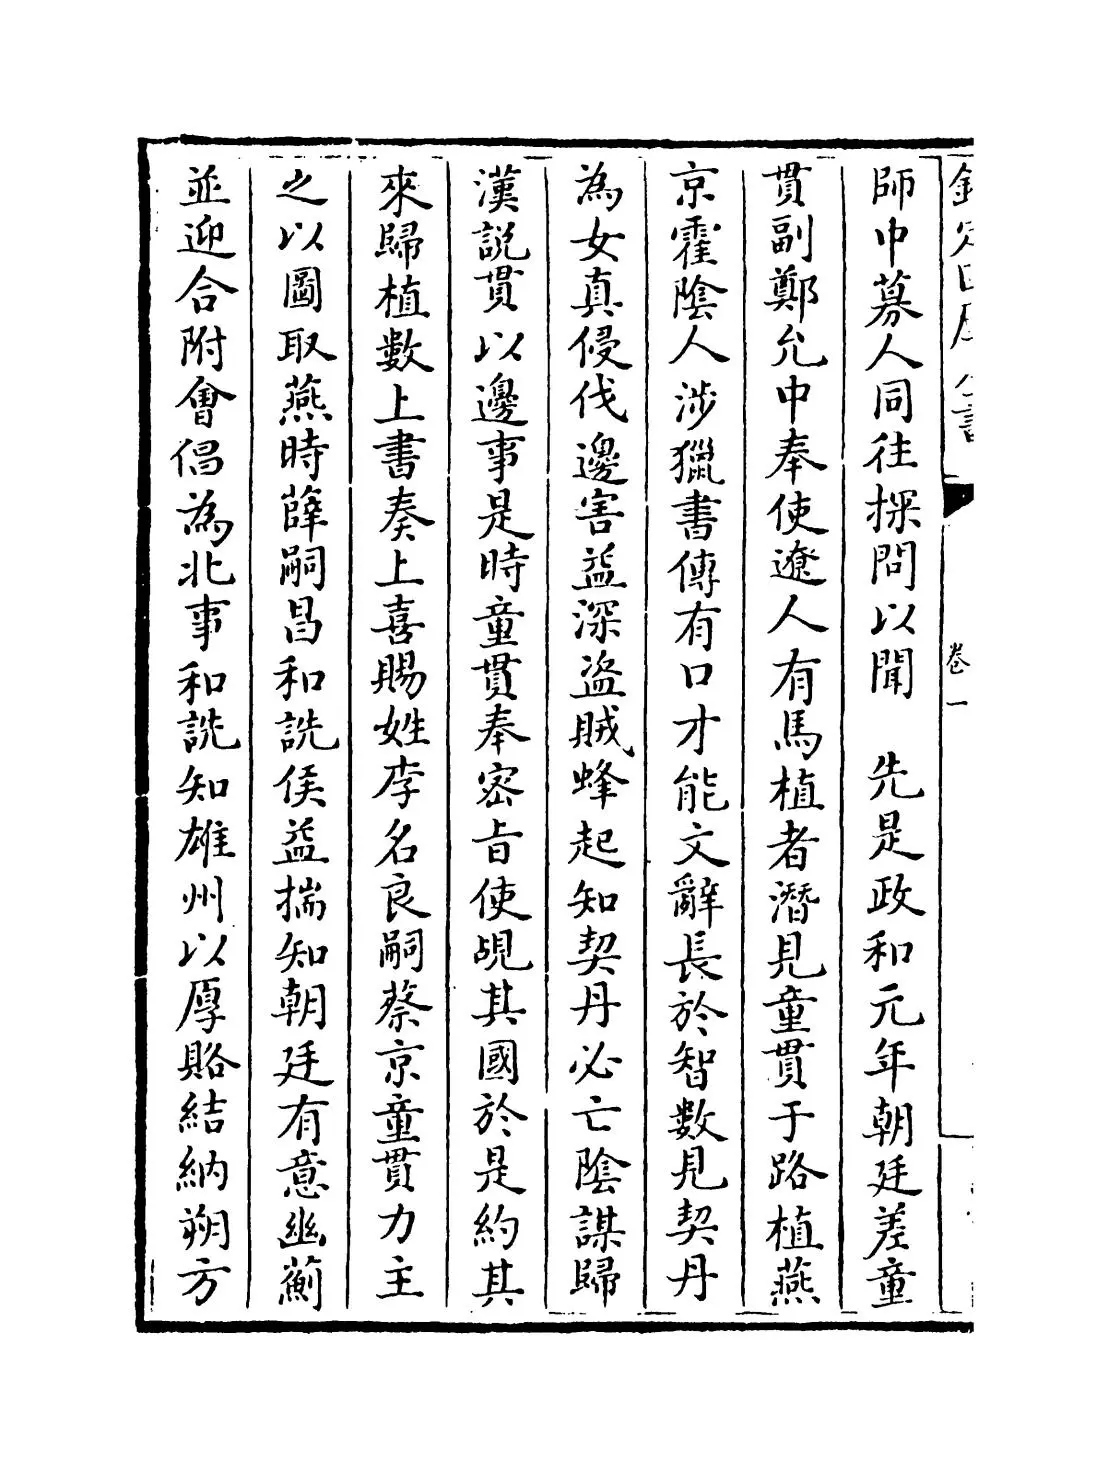 卷一
師中募人同往探問以聞　先是政和元年朝廷差童
貫副鄭允中奉使遼人有馬植者潛見童貫于路植燕
京霍陰人涉獵書傳有口才能文辭長於智數見契丹
為女真侵伐邊害益深盜賊蜂起知契丹必亡陰謀歸
漢説貫以邊事是時童貫奉密旨使覘其國於是約其
來歸植數上書奏上喜賜姓李名良嗣蔡京童貫力主
之以圖取燕時薛嗣昌和詵侯益揣知朝廷有意幽薊
並迎合附會倡為北事和詵知雄州以厚賂結納朔方